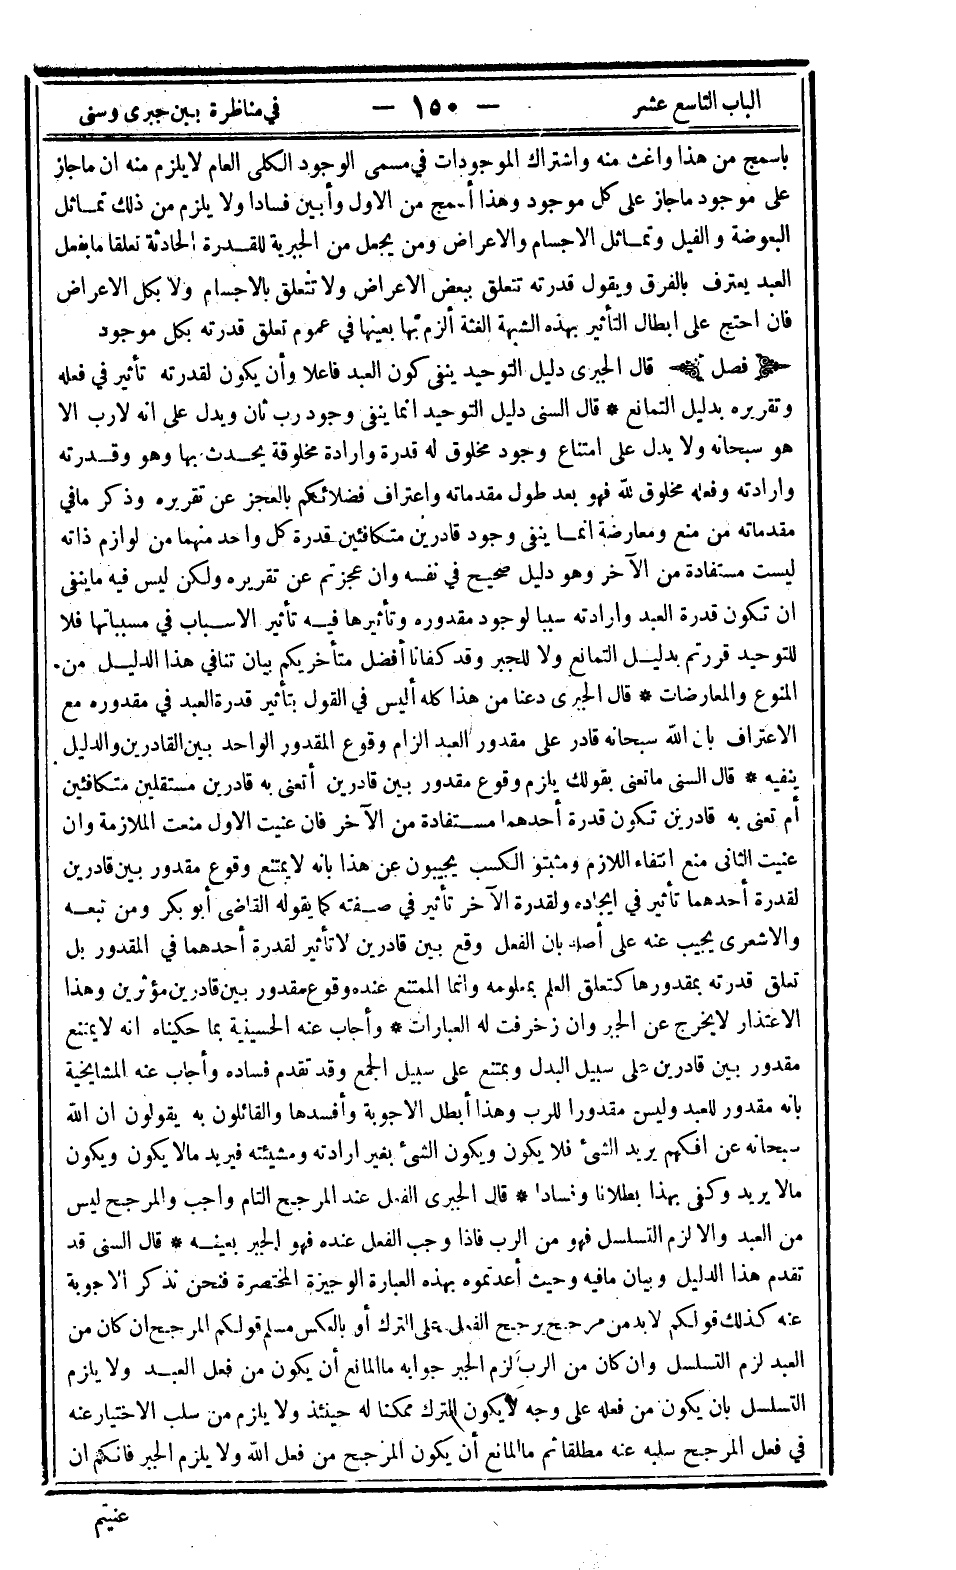 الباب التاسع عشر — ١٥٠ — في مناظرة بين جبرى وسنى
باسمج من هذا واغث منه واشتراك الموجودات في مسمى الوجود الكلى العام لا يلزم منه ان ماجاز
على موجود ماجاز على كل موجود وهذا أسمج من الاول وأبين فسادا ولا يلزم من ذلك تماثل
البعوضة والفيل وتماثل الاجسام والاعراض ومن يجعل من الجبرية للقدرة الحادثة تعلقا ما بفعل
العبد يعترف بالفرق ويقول قدرته تتعلق ببعض الاعراض ولا تتعلق بالاجسام ولا بكل الاعراض
فان احتج على ابطال التأثير بهذه الشبهة الغثة ألزم بها بعينها في عموم تعلق قدرته بكل موجود
﴿ فصل ﴾ قال الجبرى دليل التوحيد ينفى كون العبد فاعلا وأن يكون لقدرته تأثير في فعله
وتقريره بدليل التمانع * قال السنى دليل التوحيد انما ينفى وجود رب ثان ويدل على انه لارب الا
هو سبحانه ولا يدل على امتناع وجود مخلوق له قدرة وارادة مخلوقة يحدث بها وهو وقدرته
وارادته وفعله مخلوق لله فهو بعد طول مقدماته واعتراف فضلائكم بالعجز عن تقريره وذكر مافي
مقدماته من منع ومعارضة انما ينفى وجود قادرين متكافئين قدرة كل واحد منهما من لوازم ذاته
ليست مستفادة من الآخر وهو دليل صحيح في نفسه وان عجزتم عن تقريره ولكن ليس فيه ماينفى
ان تكون قدرة العبد وارادته سببا لوجود مقدوره وتأثيرها فيه تأثير الاسباب في مسبباتها فلا
للتوحيد قررتم بدليل التمانع ولا للجبر وقد كفانا أفضل متأخريكم بيان تنافي هذا الدليل من
المنوع والمعارضات * قال الجبرى دعنا من هذا كله أليس في القول بتأثير قدرة العبد في مقدوره مع
الاعتراف بان الله سبحانه قادر على مقدور العبد الزام وقوع المقدور الواحد بين القادرين والدليل
ينفيه * قال السنى ماتعنى بقولك يلزم وقوع مقدور بين قادرين أتعنى به قادرين مستقلين متكافئين
أم تعنى به قادرين تكون قدرة أحدهما مستفادة من الآخر فان عنيت الاول منعت الملازمة وان
عنيت الثانى منع انتفاء اللازم ومثبتو الكسب يجيبون عن هذا بانه لا يمتنع وقوع مقدور بين قادرين
لقدرة أحدهما تأثير في ايجاده ولقدرة الآخر تأثير في صفته كما يقوله القاضى أبو بكر ومن تبعه
والاشعرى يجيب عنه على أصله بان الفعل وقع بين قادرين لا تأثير لقدرة أحدهما في المقدور بل
تعلق قدرته بمقدورها كتعلق العلم بمعلومه وانما الممتنع عنده وقوع مقدور بين قادرين مؤثرين وهذا
الاعتذار لا يخرج عن الجبر وان زخرفت له العبارات * وأجاب عنه الحسينية بما حكيناه انه لا يمتنع
مقدور بين قادرين على سبيل البدل ويمتنع على سبيل الجمع وقد تقدم فساده وأجاب عنه المشايخية
بانه مقدور للعبد وليس مقدورا للرب وهذا أبطل الاجوبة وأفسدها والقائلون به يقولون ان الله
سبحانه عن افكهم يريد الشئ فلا يكون ويكون الشئ بغير ارادته ومشيئته فيريد مالا يكون ويكون
مالا يريد وكفى بهذا بطلانا وفسادا * قال الجبرى الفعل عند المرجح التام واجب والمرجح ليس
من العبد والا لزم التسلسل فهو من الرب فاذا وجب الفعل عنده فهو الجبر بعينه * قال السنى قد
تقدم هذا الدليل وبيان مافيه وحيث أعدتموه بهذه العبارة الوجيزة المختصرة فنحن نذكر الاجوبة
عنه كذلك قولكم لابد من مرجح يرجح الفعل على الترك أو بالعكس مسلم قولكم المرجح ان كان من
العبد لزم التسلسل وان كان من الرب لزم الجبر جوابه ماالمانع أن يكون من فعل العبد ولا يلزم
التسلسل بان يكون من فعله على وجه لا يكون الترك ممكنا له حينئذ ولا يلزم من سلب الاختيار عنه
في فعل المرجح سلبه عنه مطلقا ثم ماالمانع أن يكون المرجح من فعل الله ولا يلزم الجبر فانكم ان
عنيتم